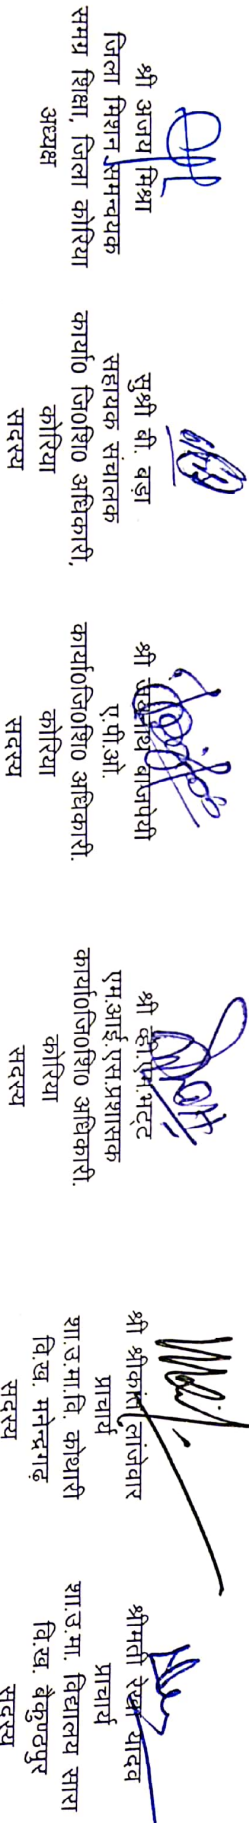 श्री अजय मिश्रा
जिला मिशन समन्वयक
समग्र शिक्षा, जिला कोरिया
अध्यक्ष
सुश्री बी. बड़ा
सहायक संचालक
कार्या0 जि0शि0 अधिकारी,
कोरिया
सदस्य
श्री बाजपेयी
ए.पी.ओ.
कार्या0जि0शि0 अधिकारी.
कोरिया
सदस्य
श्री भट्ट
एम.आई.एस.प्रशासक
कार्या0जि0शि0 अधिकारी.
कोरिया
सदस्य
श्री श्रीकांत
प्राचार्य
शा.उ.मा.वि. कोथारी
वि.ख. मनेन्द्रगढ़
सदस्य
श्रीमती रेखा यादव
प्राचार्य
शा.उ.मा. विद्यालय सारा
वि.ख. बैकुण्ठपुर
सदस्य